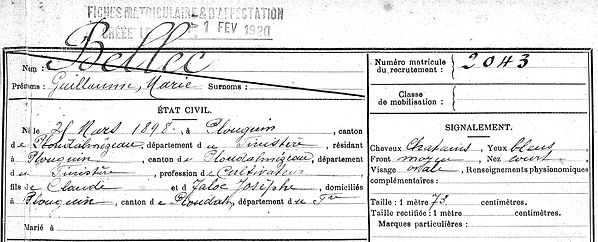 FICHES MATRICULAIRE & D'AFFECTATION
CRÉÉE LE 1 FEV 1920
Nom : Bellec
Prénoms : Guillaume, Marie Surnoms :
ÉTAT CIVIL.
Né le 25 Mars 1898, à Plouguin, canton
de Ploudalmézeau, département du Finistère, résidant
à Plouguin, canton de Ploudalmézeau, département
du Finistère, profession de Cultivateur
fils de Claude et d Jaloc Josèphe, domiciliés
à Plouguin, canton de Ploudal, département du Fre
Marié à
Numéro matricule du recrutement : 2043
Classe de mobilisation :
SIGNALEMENT.
Cheveux Chatains Yeux bleus
Front moyen Nez court
Visage ovale, Renseignements physionomiques
complémentaires :
Taille : 1 mètre 73 centimètres.
Taille rectifiée : 1 mètre centimètres.
Marques particulières :